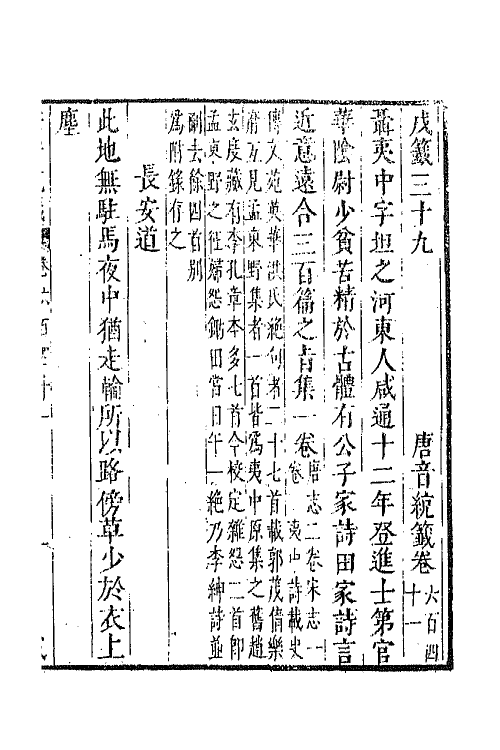 戊籖三十九　唐音統籖卷六百四十一
聶夷中字坦之河東人咸通十二年登進士第官
華陰尉少貧苦精於古體有公子家詩田家詩言
近意遠合三百篇之旨集一卷唐志二卷宋志一卷
夷中詩載史
傳文苑英華洪氏絶句者二十七首載郭茂倩樂
府互見孟東野集者一首皆爲夷中原集之舊趙
玄度藏有李孔章本多七首今校定雜怨二首即
孟東野之征婦怨鋤田當日午一絶乃李紳詩並
刪去餘四首别
爲附錄存之
長安道
此地無駐馬夜中猶走輪所以路傍草少於衣上
塵